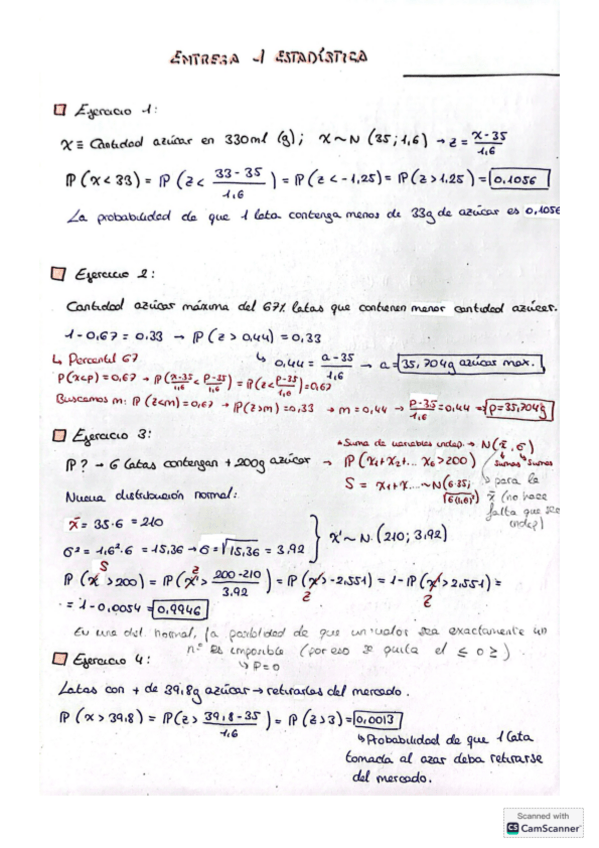 ENTREGA 1 ESTADÍSTICA
Ejercicio 1:
X ≡ Cantidad azúcar en 330ml (g); X ~ N (35; 1,6) → z = x-35 / 1,6
P(x < 33) = P(z < 33-35 / 1,6) = P(z < -1,25) = P(z > 1,25) = 0,1056
La probabilidad de que 1 lata contenga menos de 33g de azúcar es 0,1056
Ejercicio 2:
Cantidad azúcar máxima del 67% latas que contienen menor cantidad azúcar.
1-0,67 = 0,33 → P(z > 0,44) = 0,33
↳ Percentil 67
↳ 0,44 = a-35 / 1,6 → a = 35,704g azúcar max.
P(x<p) = 0,67 → P(x-35 / 1,6 < p-35 / 1,6) = P(z < p-35 / 1,6) = 0,67
Buscamos m: P(z<m) = 0,67 → P(z>m) = 0,33 → m = 0,44 → p-35 / 1,6 = 0,44 ⇒ p = 35,704g
Ejercicio 3:
* Suma de variables indep. → N(x̄, σ)
P? → 6 latas contengan +200g azúcar → P(x1+x2+... x6 > 200)
sumas sumas
S = x1+x... ~ N(6·35; √6(1,6)²)
para la x̄ (no hace falta que sea indep)
Nueva distribución normal:
x̄ = 35·6 = 210
σ² = 1,6²·6 = 15,36 → σ = √15,36 = 3,92
x' ~ N (210; 3,92)
S
z
P(x' > 200) = P(x' > 200-210 / 3,92) = P(x' > -2,551) = 1 - P(x' > 2,551) =
z
z
= 1-0,0054 = 0,9946
En una dist. normal, la posibilidad de que un valor sea exactamente un
nº es imposible (por eso se quita el ≤ o ≥)
↳ P=0
Ejercicio 4:
Latas con + de 39,8g azúcar → retirarlas del mercado.
P(x > 39,8) = P(z > 39,8-35 / 1,6) = P(z > 3) = 0,0013
↳ Probabilidad de que 1 lata
tomada al azar deba retirarse
del mercado.
Scanned with
CS CamScanner